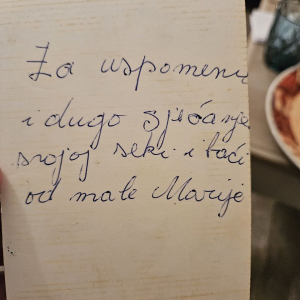 Za uspomenu
i dugo sjećanje
svojoj seki i baći
od male Marije